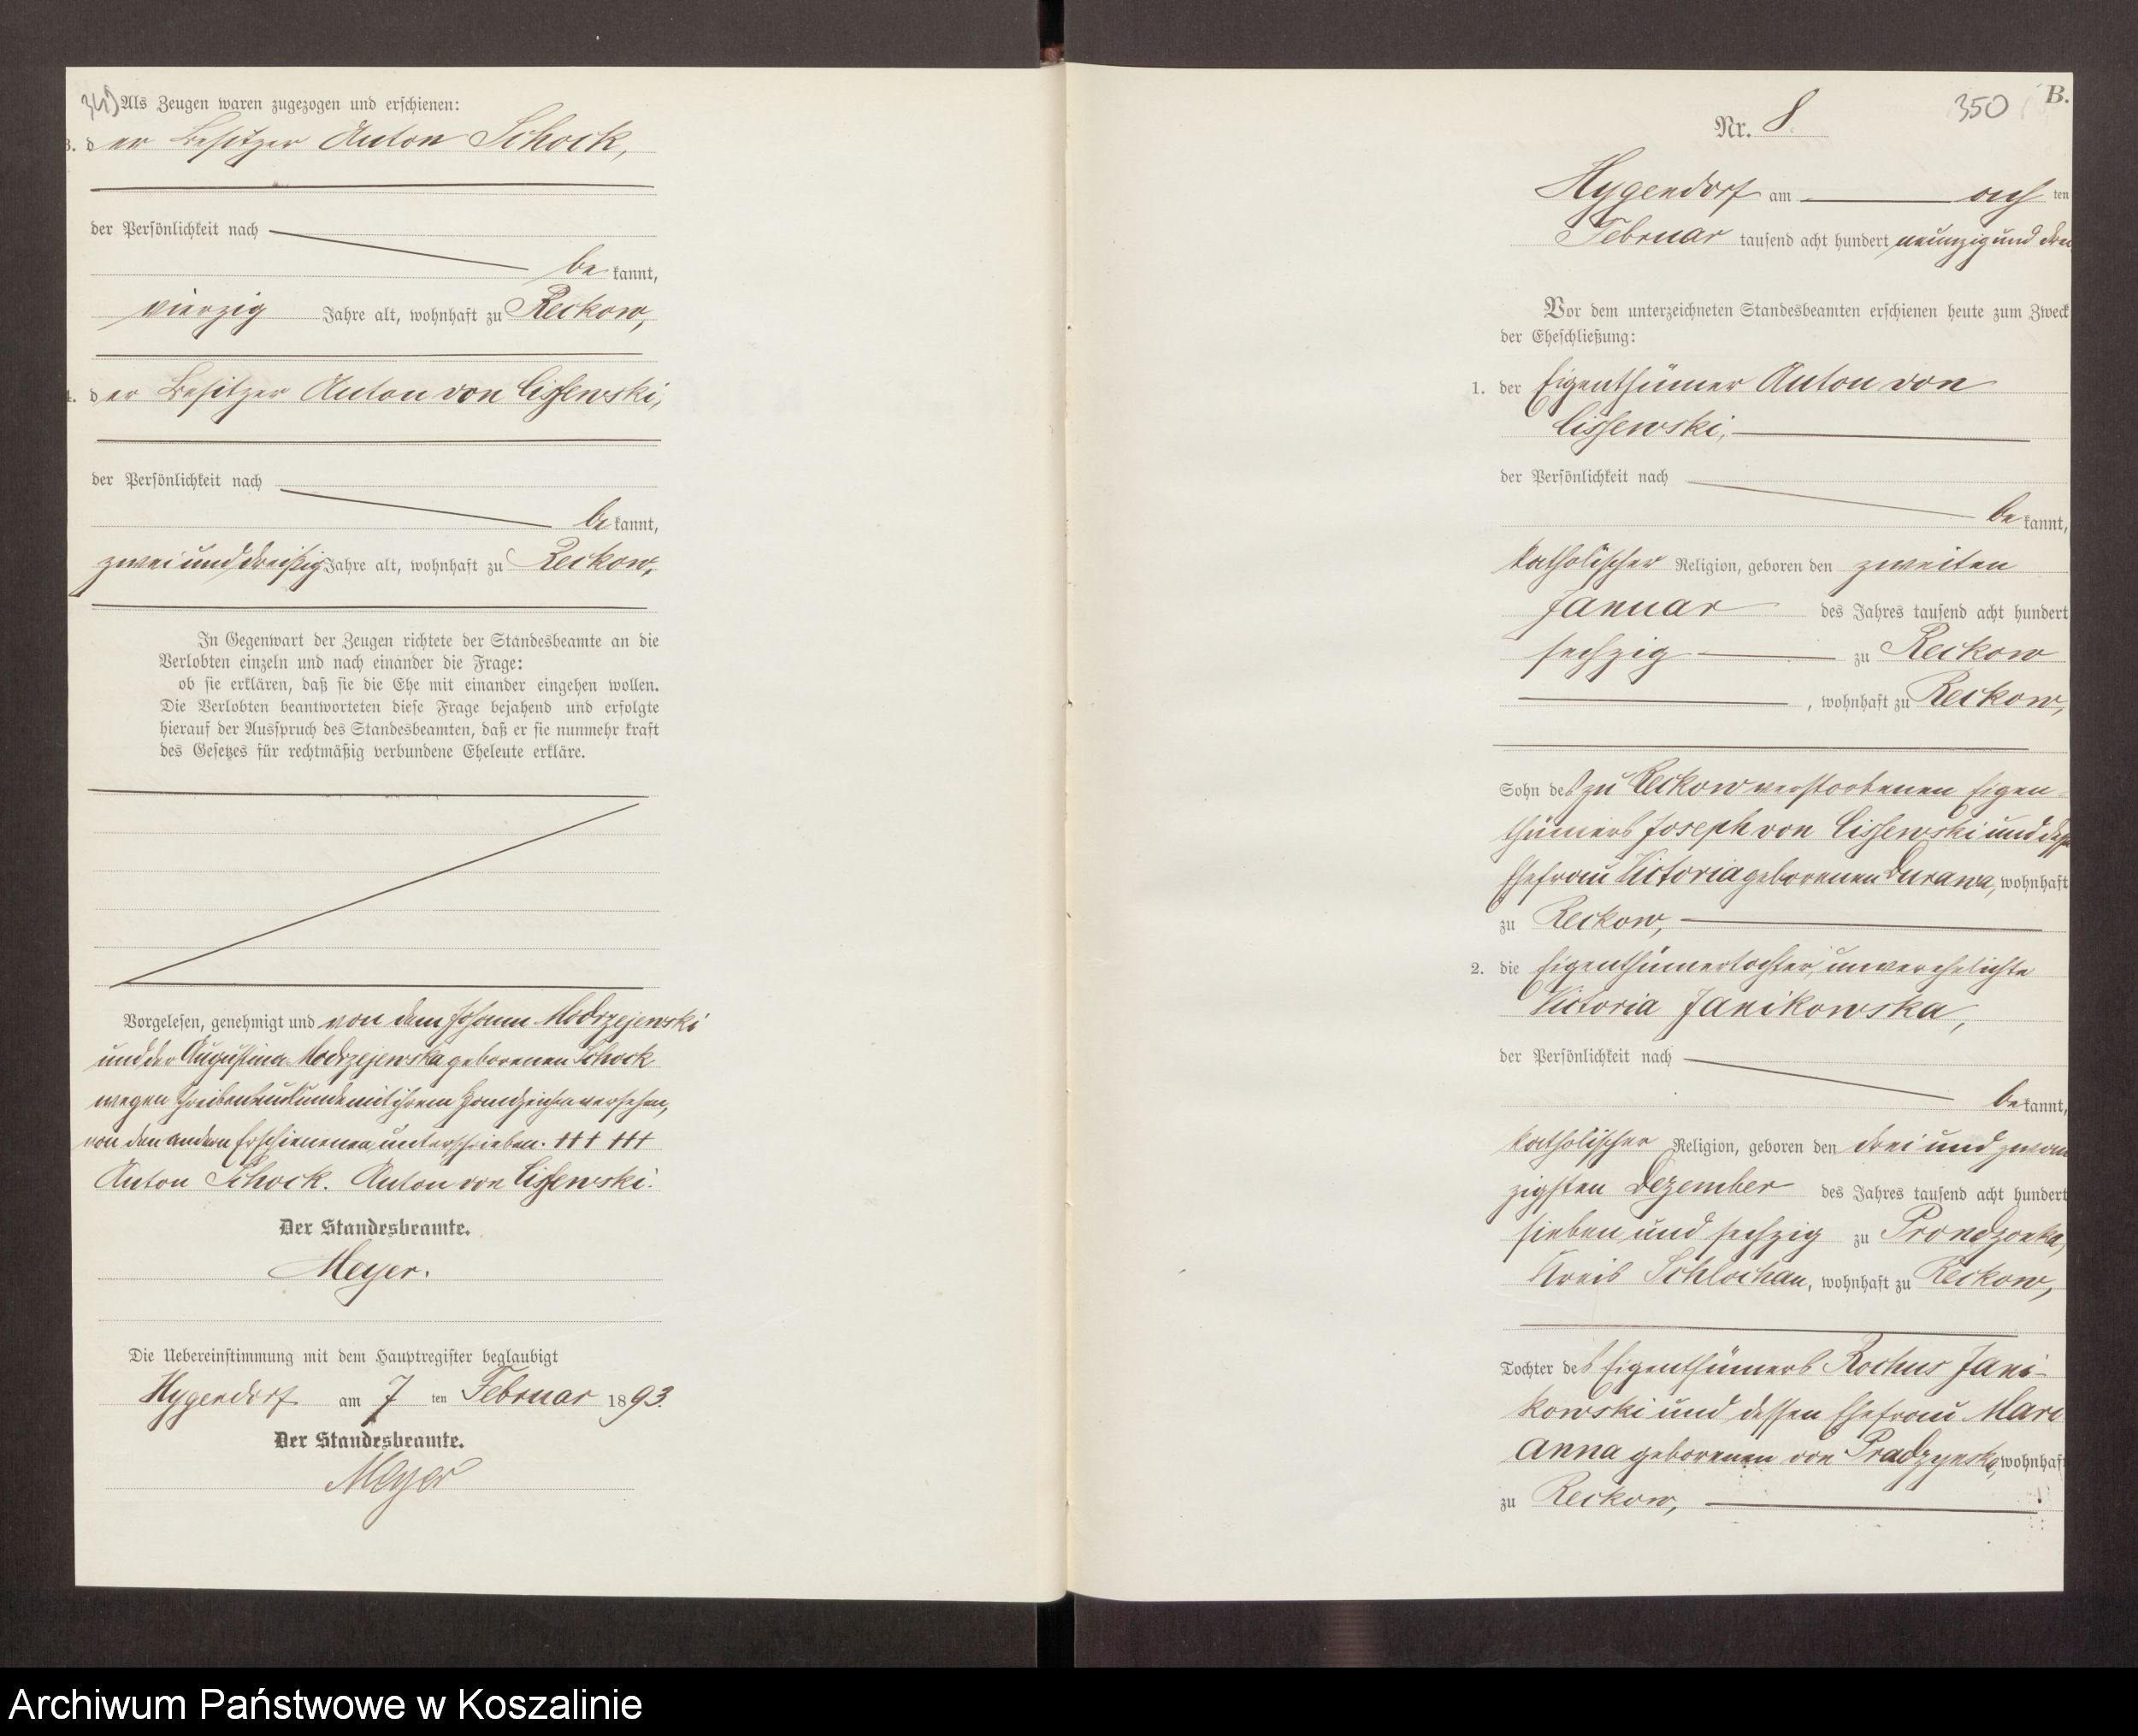 Als Zeugen waren zugezogen und erschienen:
3. der Besitzer Anton Schock,
der Persönlichkeit nach
be kannt,
vierzig Jahre alt, wohnhaft zu Reckow,
4. der Besitzer Anton von Cissewski,
der Persönlichkeit nach
be kannt,
zwei und dreißig Jahre alt, wohnhaft zu Reckow,
In Gegenwart der Zeugen richtete der Standesbeamte an die
Verlobten einzeln und nach einander die Frage:
ob sie erklären, daß sie die Ehe mit einander eingehen wollen.
Die Verlobten beantworteten diese Frage bejahend und erfolgte
hierauf der Ausspruch des Standesbeamten, daß er sie nunmehr kraft
des Gesetzes für rechtmäßig verbundene Eheleute erkläre.
Vorgelesen, genehmigt und von dem Johann Modrzejewski
und der Augustina Modrzejewska geborenen Schock
wegen Schreibensunkunde mit ihrem Handzeichen versehen,
von den andern Erschienenen unterschrieben. ††† †††
Anton Schock. Anton von Cissewski.
Der Standesbeamte.
Meyer.
Die Uebereinstimmung mit dem Hauptregister beglaubigt
Hygendorf am 7 ten Februar 1893.
Der Standesbeamte.
Meyer
350 B.
Nr. 8.
Hygendorf am ach ten
Februar tausend acht hundert neunzig und drei
Vor dem unterzeichneten Standesbeamten erschienen heute zum Zweck
der Eheschließung:
1. der Eigenthümer Anton von
Cissewski,
der Persönlichkeit nach
be kannt,
katholischer Religion, geboren den zweiten
Januar des Jahres tausend acht hundert
sechzig zu Reckow
, wohnhaft zu Reckow,
Sohn des zu Reckow verstorbenen Eigen-
thümers Joseph von Cissewski und dessen
Ehefrau Victoria geborenen Durawa, wohnhaft
zu Reckow,
2. die Eigenthümertochter, unverehelichte
Victoria Janikowska,
der Persönlichkeit nach
be kannt,
katholischer Religion, geboren den drei und zwan
zigsten Dezember des Jahres tausend acht hundert
sieben und sechzig zu Prondzonka,
Kreis Schlochau, wohnhaft zu Reckow,
Tochter des Eigenthümers Rochus Jani-
kowski und dessen Ehefrau Mari
Anna geborenen von Pradzynska, wohnhaft
zu Reckow,
Archiwum Państwowe w Koszalinie